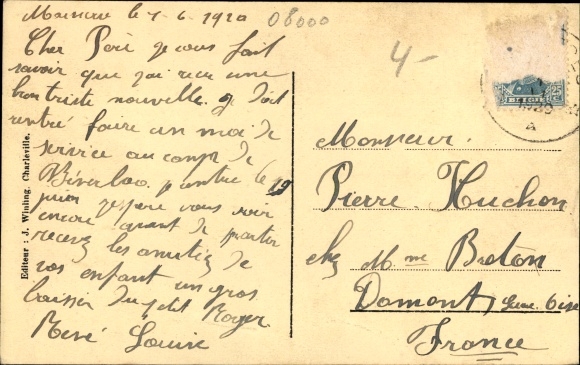 le 1-6-1920
08000
4-
Cher Père je vous fait
savoir que j'ai recu une
bien triste nouvelle. je doit
rentré faire un moi de
service au camp de
Béverloo. j'entre le 19
juin j'espère vous voir
encore avant de partir
recevez les amitiez de
vos enfant un gros
baisser du petit Roger
René Louise
Editeur : J. Winling, Charleville.
A
Monsieur
Pierre Huchon
chez Mme Breton
Domont Seine Oise
France